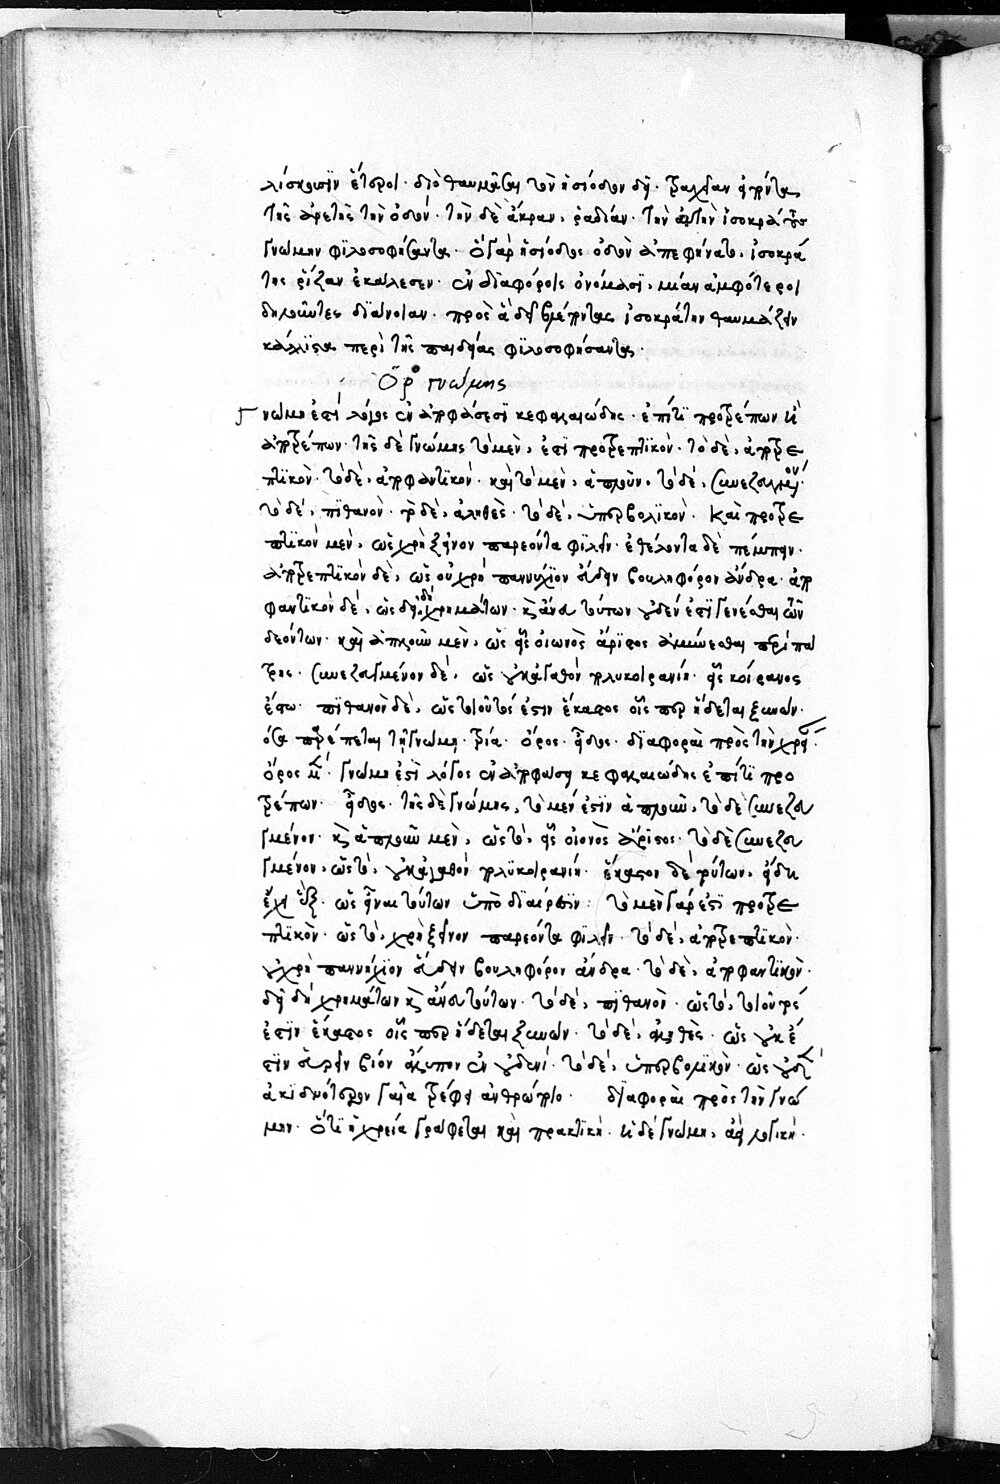 λίσκουσιν ἕτεροι· διὸ θαυμάσαι τὸν ἡσίοδον δεῖ· τραχεῖαν εἰπόντα
τῆς ἀρετῆς τὴν ὁδόν· τὴν δὲ ἄκραν, ῥαδίαν· τὴν αὐτὴν ἰσοκράτους
γνώμην φιλοσοφήσαντα· ὃ γὰρ ἡσίοδος ὁδὸν ἀπεφήνατο, ἰσοκρά
της ῥίζαν ἐκάλεσεν· ἐν διαφόροις ὀνόμασι, μίαν ἀμφότεροι
δηλοῦντες διάνοιαν· πρὸς ἃ δεῖ βλέποντας ἰσοκράτην θαυμάζειν
κάλλιστα περὶ τῆς παιδείας φιλοσοφήσαντα·
Ὅρος γνώμης
γνώμη ἐστὶ λόγος ἐν ἀποφάσεσι κεφαλαιώδης· ἐπί τι προτρέπων ἢ
ἀποτρέπων· τῆς δὲ γνώμης τὸ μὲν, ἐστὶ προτρεπτικὸν· τὸ δὲ, ἀποτρε
πτικὸν· τὸ δὲ, ἀποφαντικὸν· καὶ τὸ μὲν, ἁπλοῦν· τὸ δὲ, συνεζευγμένον·
τὸ δὲ, πιθανὸν· τὸ δὲ, ἀληθὲς· τὸ δὲ, ὑπερβολικὸν· καὶ προτρε
πτικὸν μὲν, ὡς χρὴ ξεῖνον παρεόντα φιλεῖν· ἐθέλοντα δὲ πέμπειν·
ἀποτρεπτικὸν δὲ, ὡς οὐ χρὴ παννύχιον εὕδειν βουληφόρον ἄνδρα· ἀπο
φαντικὸν δὲ, ὡς δεῖ δὴ χρημάτων· καὶ ἄνευ τούτων οὐδέν ἐστι γενέσθαι τῶν
δεόντων· καὶ ἁπλοῦν μὲν, ὡς εἷς οἰωνὸς ἄριστος ἀμύνεσθαι περὶ πά
τρης· συνεζευγμένον δὲ, ὡς οὐκ ἀγαθὸν πολυκοιρανίη· εἷς κοίρανος
ἔστω· πιθανὸν δὲ, ὡς τοιοῦτός ἐστιν ἕκαστος οἷς περ ἥδεται ξυνών·
ὅσα πρέπεται τῇ γνώμῃ· τρία· ὅρος· εἶδος· διαφοραὶ πρὸς τὴν χρείαν·
ὅρος μὲν· γνώμη ἐστὶ λόγος ἐν ἀποφάνσει κεφαλαιώδης ἐπί τι προ
τρέπων· εἶδος· τῆς δὲ γνώμης, τὸ μέν ἐστιν ἁπλοῦν, τὸ δὲ συνεζευ
γμένον· καὶ ἁπλοῦν μὲν, ὡς τὸ, εἷς οἰωνὸς ἄριστος· τὸ δὲ συνεζευ
γμένον, ὡς τὸ, οὐκ ἀγαθὸν πολυκοιρανίη· ἕκαστον δὲ τούτων, εἴδη
ἔχει ἕξ· ὡς εἶναι τούτων ὑπὸ διαίρεσιν· τὸ μὲν γάρ ἐστι προτρε
πτικὸν· ὡς τὸ, χρὴ ξεῖνον παρεόντα φιλεῖν· τὸ δὲ, ἀποτρεπτικὸν·
οὐ χρὴ παννύχιον εὕδειν βουληφόρον ἄνδρα· τὸ δὲ, ἀποφαντικὸν·
δεῖ δὴ χρημάτων καὶ ἄνευ τούτων· τὸ δὲ, πιθανὸν· ὡς τὸ, τοιοῦτός
ἐστιν ἕκαστος οἷς περ ἥδεται ξυνών· τὸ δὲ, ἀληθὲς· ὡς οὐκ ἔ
στιν εὑρεῖν βίον ἄλυπον ἐν οὐδενί· τὸ δὲ, ὑπερβολικὸν· ὡς οὐδὲν
ἀκιδνότερον γαῖα τρέφει ἀνθρώποιο· διαφοραὶ πρὸς τὴν γνώ
μην· ὅτι ἡ χρεία γράφεται καὶ πρακτική· ἡ δὲ γνώμη, ἀεὶ λογική·